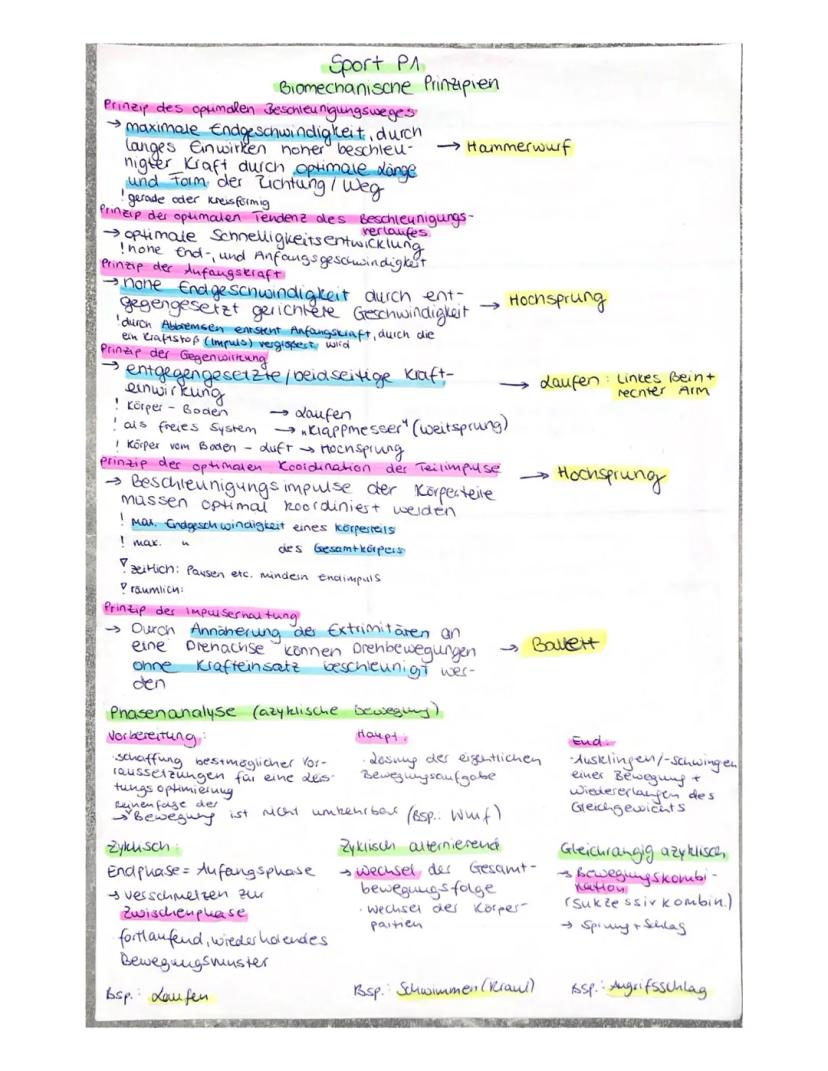 Sport P1
Biomechanische Prinzipien
Prinzip des optimalen Beschleunigungsweges
→ maximale Endgeschwindigkeit, durch
langes Einwirken hoher beschleu-
nigter Kraft durch optimale Länge
und Form der Richtung / Weg
→ Hammerwurf
! gerade oder kreisförmig
Prinzip der optimalen Tendenz des Beschleunigungs-
verlaufes
→ optimale Schnelligkeitsentwicklung
! hohe End-, und Anfangsgeschwindigkeit
Prinzip der Anfangskraft
→ hohe Endgeschwindigkeit durch ent-
gegengesetzt gerichtete Geschwindigkeit
→ Hochsprung
! durch Abbremsen entsteht Anfangskraft, durch die
ein Kraftstoß (Impuls) vergrößert wird
Prinzip der Gegenwirkung
→ entgegengesetzte/beidseitige Kraft-
einwirkung
→ Laufen: Linkes Bein +
rechter Arm
! Körper - Boden → Laufen
! als freies System → "Klappmesser" (Weitsprung)
! Körper vom Boden - Luft → Hochsprung
Prinzip der optimalen Koordination der Teilimpulse
→ Hochsprung
→ Beschleunigungsimpulse der Körperteile
müssen optimal koordiniert werden
! Max. Endgeschwindigkeit eines Körperteils
! max. " des Gesamtkörpers
! zeitlich: Pausen etc. mindern Endimpuls
! räumlich:
Prinzip der Impulserhaltung
→ Durch Annäherung der Extrimitäten an
eine Drehachse können Drehbewegungen
ohne Krafteinsatz beschleunigt wer-
den
→ Ballett
Phasenanalyse (azyklische Bewegung)
Vorbereitung:
· schaffung bestmöglicher Vor-
raussetzungen für eine Leis-
tungsoptimierung
Reihenfolge der
→ Bewegung ist nicht umkehrbar (Bsp.: Wurf)
Haupt:
· Lösung der eigentlichen
Bewegungsaufgabe
End:
· Ausklingen/-schwingen
einer Bewegung +
wiedererlangen des
Gleichgewichts
Zyklisch:
Endphase = Anfangsphase
→ verschmelzen zur
Zwischenphase
fortlaufend, wiederholendes
Bewegungsmuster
Bsp.: Laufen
Zyklisch alternierend
→ Wechsel der Gesamt-
bewegungsfolge
· Wechsel der Körper-
partien
Bsp.: Schwimmen (Kraul)
Gleichrangig azyklisch
→ Bewegungskombi-
nation
(sukzessivkombin.)
→ Sprung + Schlag
Bsp.: Angriffsschlag